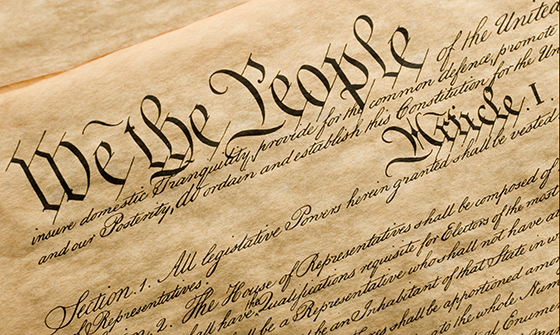 We the People of the United
insure domestic Tranquility, provide for the common defence, promote
and our Posterity, do ordain and establish this Constitution for the Un
Article. I.
Section. 1. All legislative Powers herein granted shall be vested
of Representatives.
2. The House of Representatives shall be composed of
shall have the Qualifications requisite for Electors of the most
be a Representative who shall not have
be an Inhabitant of that State in
shall be apportioned amon
the whole Num
Enume